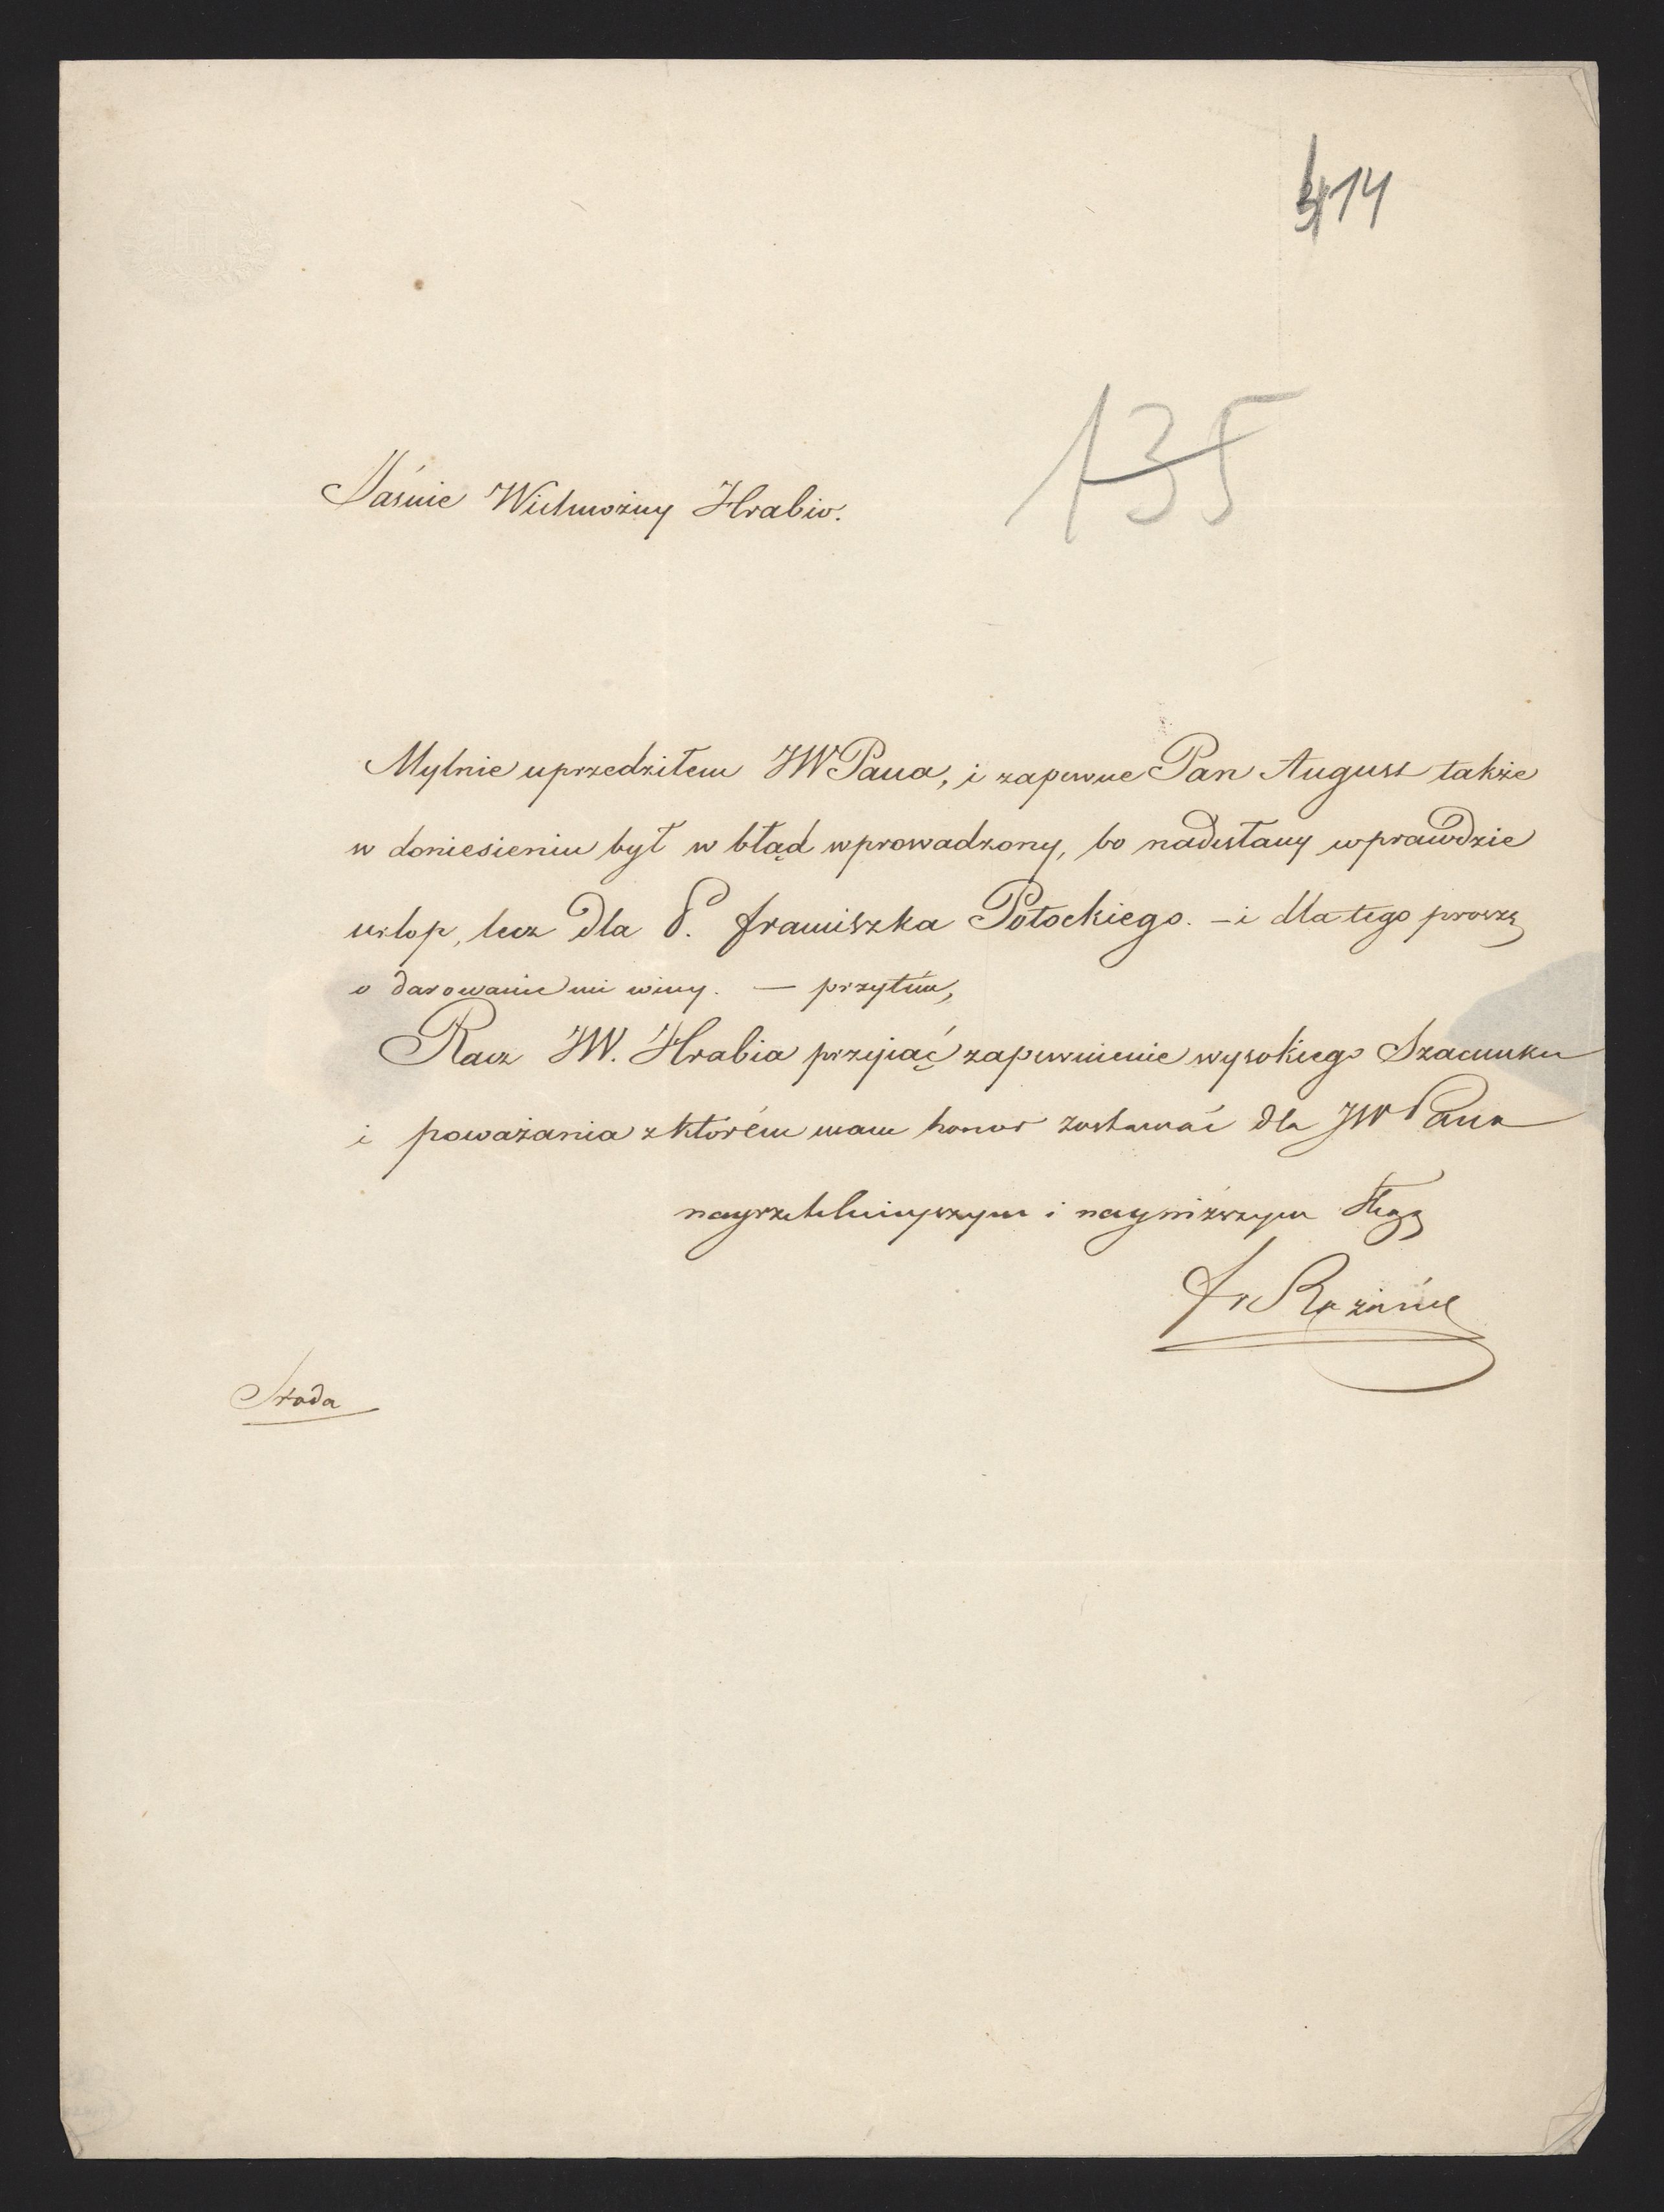 14
135
Jaśnie Wielmożny Hrabio.
Mylnie uprzedziłem JWPana, i zapewne Pan August także
w doniesieniu był w błąd wprowadzony, bo nadesłany wprawdzie
urlop, lecz dla P. Franciszka Potockiego. – i dla tego proszę
o darowanie mi winy. — przytém,
Racz JW. Hrabia przyjąć zapewnienie wysokiego Szacunku
i poważania z którém mam honor zostawać dla JW Pana
nayrzetelnieyszym i nayniższym sługą
Fr
Sroda